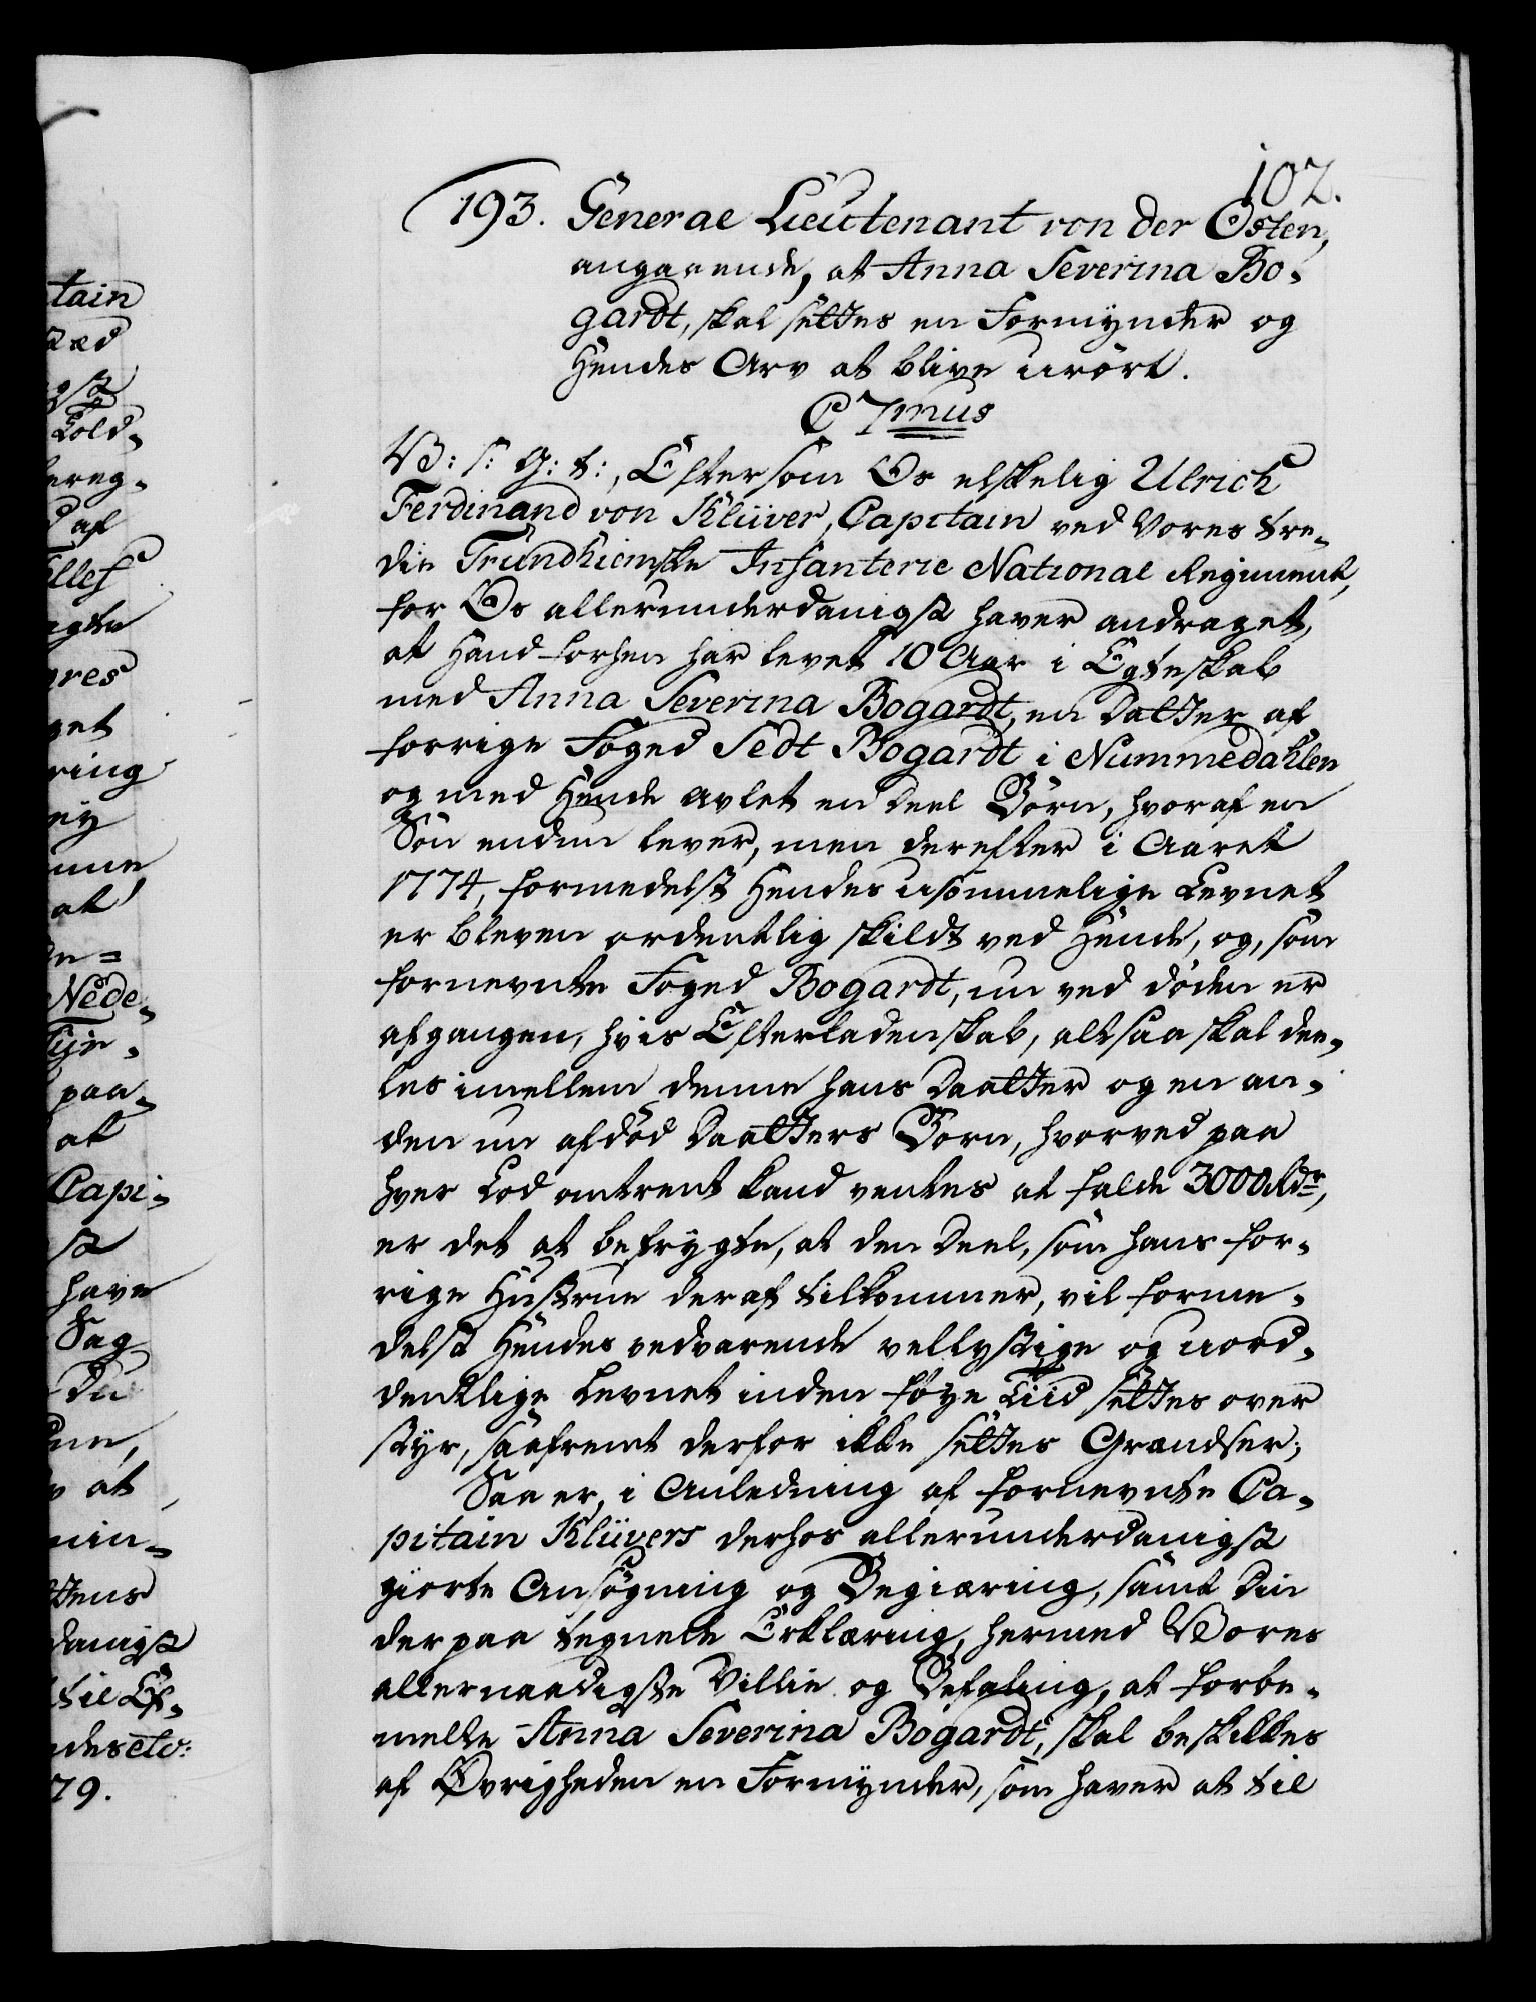 102.
193. General Lieutenant von der Osten,
angaaende, at Anna Severina Bo-
gardt, skal settes en Formynder og
Hendes Arv at blive urørt.
C 7mus
V: S: G: t:, Eftersom Os elskelig Ulrich
Ferdinand von Klüver, Capitain ved Vores tre-
die Trundhiemske Infanterie National Regiment,
for Os allerunderdanigst haver andraget,
at Hand forhen har levet 10 Aar i Egteskab
med Anna Severina Bogardt, en Datter af
forrige Foged Sedt Bogardt i Nummedahlen
og med Hende avlet en Deel Børn, hvoraf en
Søn endnu lever, men derefter i Aaret
1774, formedelst Hendes usømmelige Levnet
er bleven ordentlig skildt ved Hende, og, som
fornevnte Foged Bogardt, nu ved døden er
afgangen, hvis Efterladenskab, altsaa skal dee-
les imellem denne hans Daatter og en an-
den nu afdød Daatters Børn, hvorved paa
hver Lod omtrent kand ventes at falde 3000 Rdr,
er det at befrygte, at den Deel, som hans for-
rige Hustrue deraf tilkommer, vil forme-
delst Hendes vedvarende vellystige og uord-
dentlige Levnet inden føye Tiid settes over
styr, saafremt derfor ikke settes Grændser;
Saa er, i Anledning af fornevnte Ca-
pitain Klüvers derhos allerunderdanigst
giorte Ansøgning og Begiæring, samt Din
derpaa tegnede Erklæring, hermed Vores
allernaadigste Villie og Befaling, at forbe-
melte Anna Severina Bogardt, skal beskikkes
af Øvrigheden en Formynder, som haver at til
tain
Told-
ereg-
af
llef
gste
res
get
ring
ey
nne
at
Nede-
paa-
at
Capi-
st
have
Sag
Du
at
min-
danigst
til Ef-
ndes etc:
79.